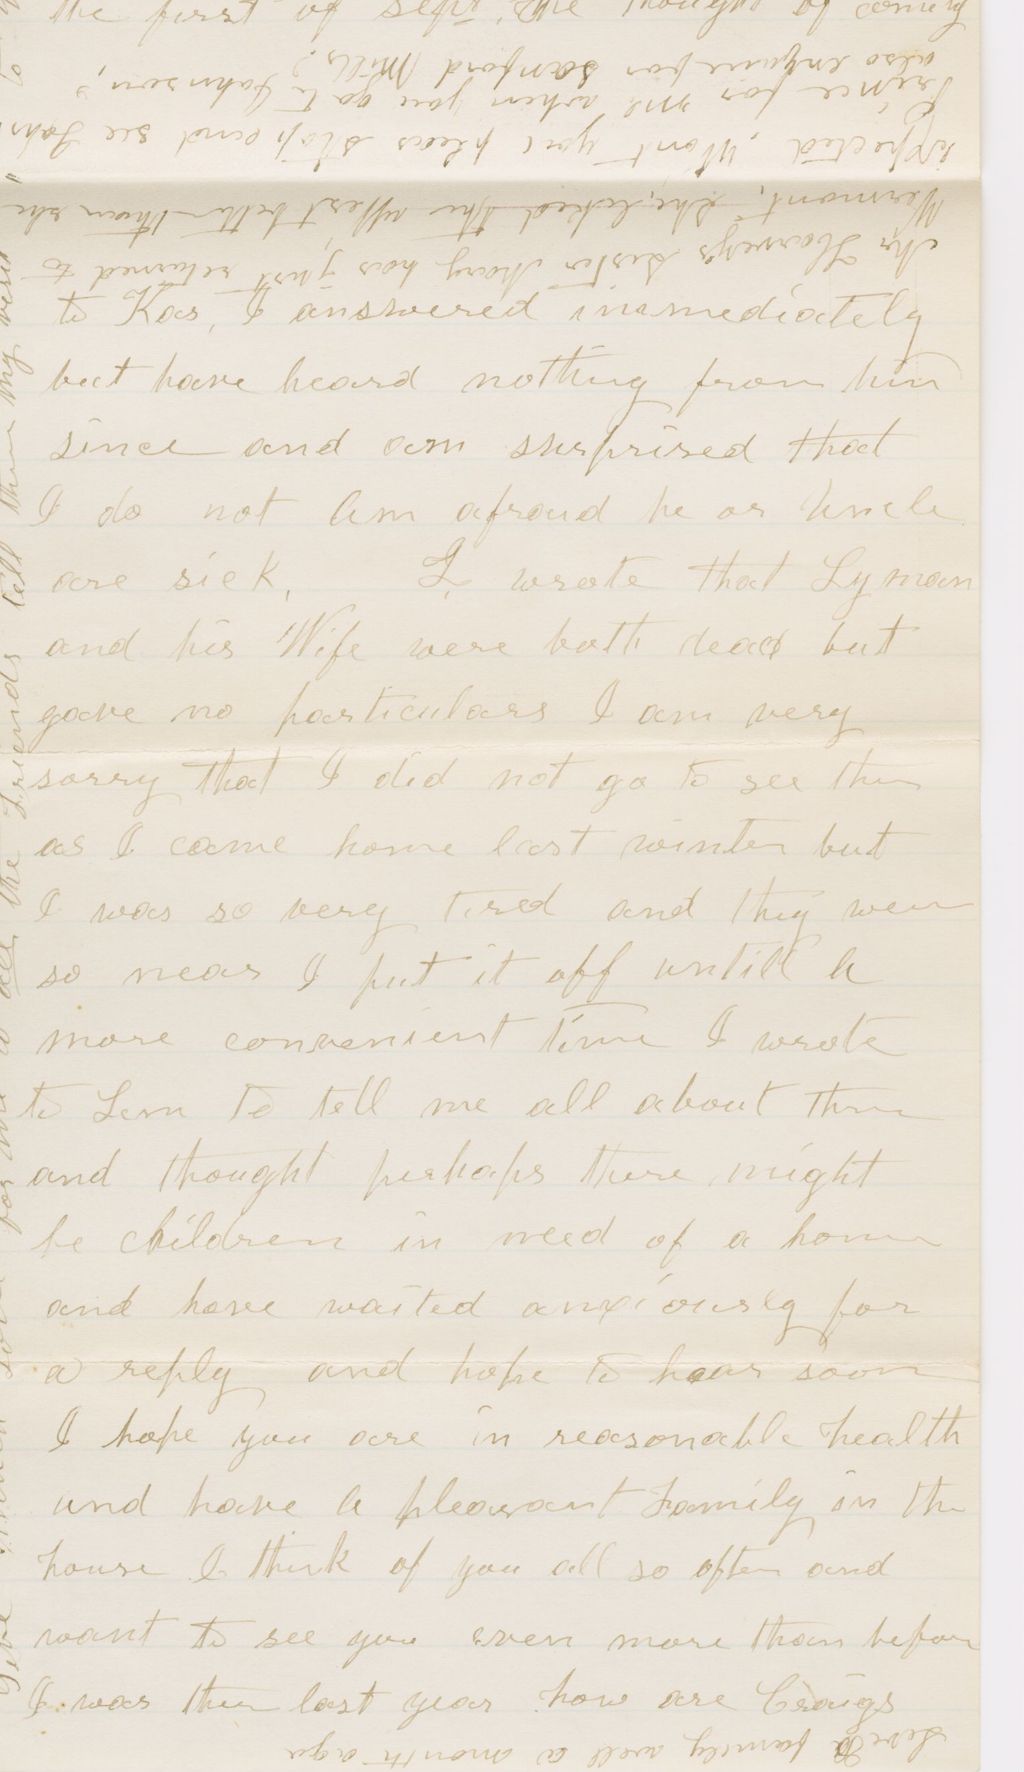 to Kas, I answered immediately
but have heard nothing from him
since and am surprised that
I do not Am afraid he or Uncle
are sick. L, wrote that Lyman
and his Wife were both dead but
gave no particulars I am very
sorry that I did not go to see them
as I came home last winter but
I was so very tired and they were
so near I put it off untill a
more convenient time I wrote
to Lem to tell me all about them
and thought perhaps there might
be children in need of a home
and have waited anxiously for
a reply and hope to hear soon
I hope you are in reasonable health
and have a pleasant family in the
house I think of you all so often and
want to see you even more than before
I was there last year how are Craigs
family well a month ago
Mr Harvey's sister Mary has just returned to
Vermont, she liked the West better than she
expected. Wont you pleas stop and see John
Prince for me when you go to Johnson?
also enquire for Sanford Mills,
the first of Sept, we thought of
Give much love for me to all the Friends tell them my